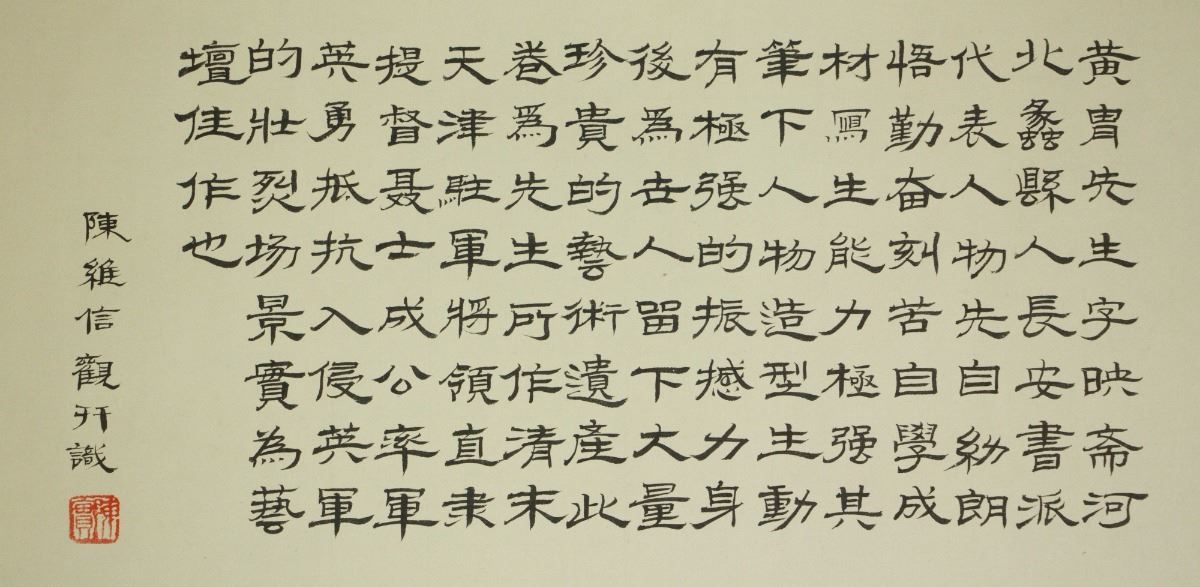 黃胄先生字映斋河
北蠡縣人長安書派
代表人物先自幼朗
悟勤奋刻苦自學成
材寫生能力極强其
筆下人物造型生動
有極强的振撼力身
後為世人留下大量
珍貴的藝術遺產此
卷為先生所作清末
天津駐軍將領直隶
提督聂士成公率軍
英勇抵抗入侵英軍
的壯烈场景實為藝
壇佳作也
陳維信觀并識